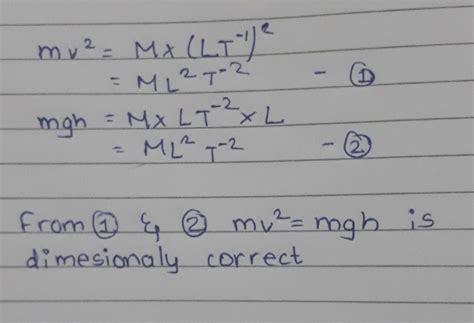 mv² = M×(LT⁻¹)²
= ML²T⁻² - ①
mgh = M×LT⁻²×L
= ML²T⁻² - ②
From ① & ② mv²=mgh is
dimesionaly correct